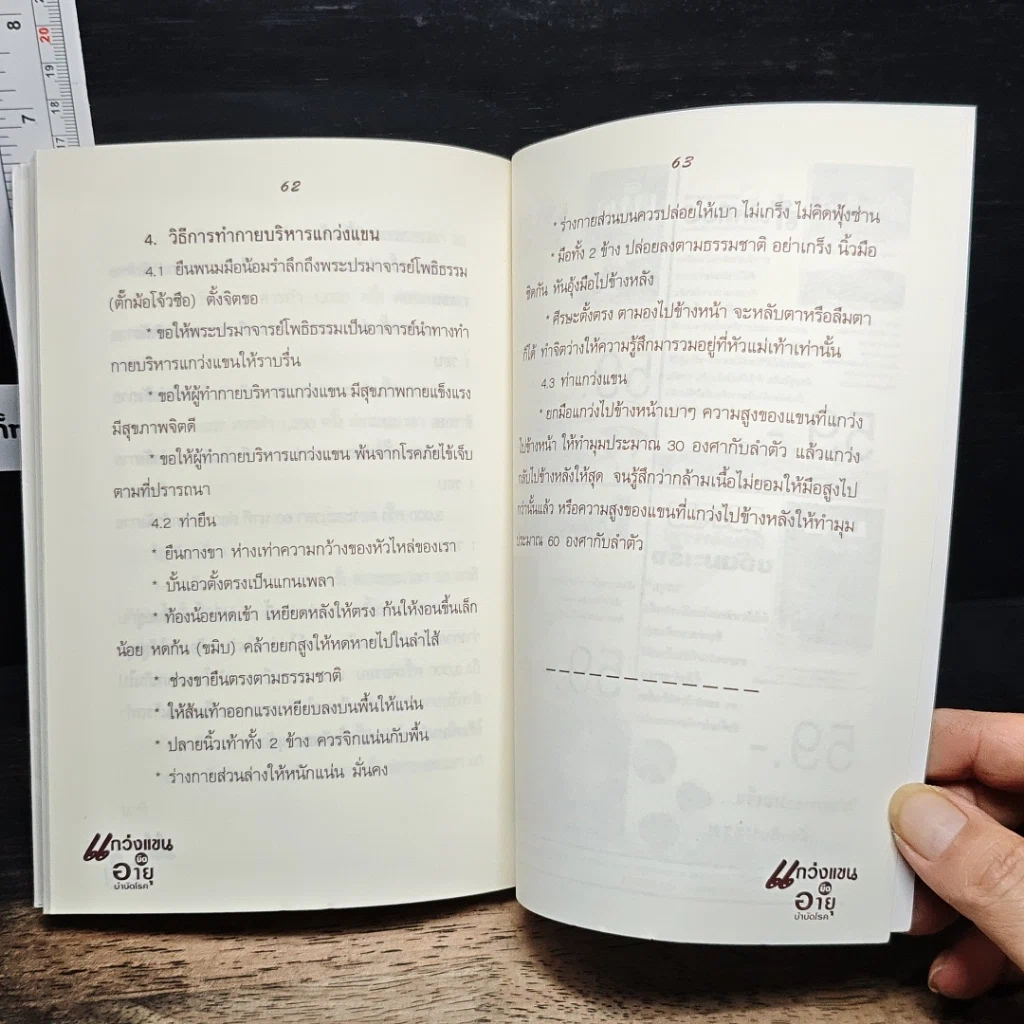 8
7
20
19
18
17
62
4. วิธีการทำกายบริหารแกว่งแขน
4.1 ยืนพนมมือน้อมรำลึกถึงพระปรมาจารย์โพธิธรรม
(ตั๊กม้อโจ้วซือ) ตั้งจิตขอ
* ขอให้พระปรมาจารย์โพธิธรรมเป็นอาจารย์นำทางทำ
กายบริหารแกว่งแขนให้ราบรื่น
* ขอให้ผู้ทำกายบริหารแกว่งแขน มีสุขภาพกายแข็งแรง
มีสุขภาพจิตดี
* ขอให้ผู้ทำกายบริหารแกว่งแขน พ้นจากโรคภัยไข้เจ็บ
ตามที่ปรารถนา
4.2 ท่ายืน
* ยืนกางขา ห่างเท่าความกว้างของหัวไหล่ของเรา
* บั้นเอวตั้งตรงเป็นแกนเพลา
* ท้องน้อยหดเข้า เหยียดหลังให้ตรง ก้นให้งอนขึ้นเล็ก
น้อย หดก้น (ขมิบ) คล้ายยกสูงให้หดหายไปในลำไส้
* ช่วงขายืนตรงตามธรรมชาติ
* ให้ส้นเท้าออกแรงเหยียบลงบนพื้นให้แน่น
* ปลายนิ้วเท้าทั้ง 2 ข้าง ควรจิกแน่นกับพื้น
* ร่างกายส่วนล่างให้หนักแน่น มั่นคง
แกว่งแขน
ยืด
อายุ
บำบัดโรค
63
* ร่างกายส่วนบนควรปล่อยให้เบา ไม่เกร็ง ไม่คิดฟุ้งซ่าน
* มือทั้ง 2 ข้าง ปล่อยลงตามธรรมชาติ อย่าเกร็ง นิ้วมือ
ชิดกัน หันอุ้งมือไปข้างหลัง
* ศีรษะตั้งตรง ตามองไปข้างหน้า จะหลับตาหรือลืมตา
ก็ได้ ทำจิตว่างให้ความรู้สึกมารวมอยู่ที่หัวแม่เท้าเท่านั้น
4.3 ท่าแกว่งแขน
* ยกมือแกว่งไปข้างหน้าเบาๆ ความสูงของแขนที่แกว่ง
ไปข้างหน้า ให้ทำมุมประมาณ 30 องศากับลำตัว แล้วแกว่ง
กลับไปข้างหลังให้สุด จนรู้สึกว่ากล้ามเนื้อไม่ยอมให้มือสูงไป
กว่านั้นแล้ว หรือความสูงของแขนที่แกว่งไปข้างหลังให้ทำมุม
ประมาณ 60 องศากับลำตัว
แกว่งแขน
ยืด
อายุ
บำบัดโรค